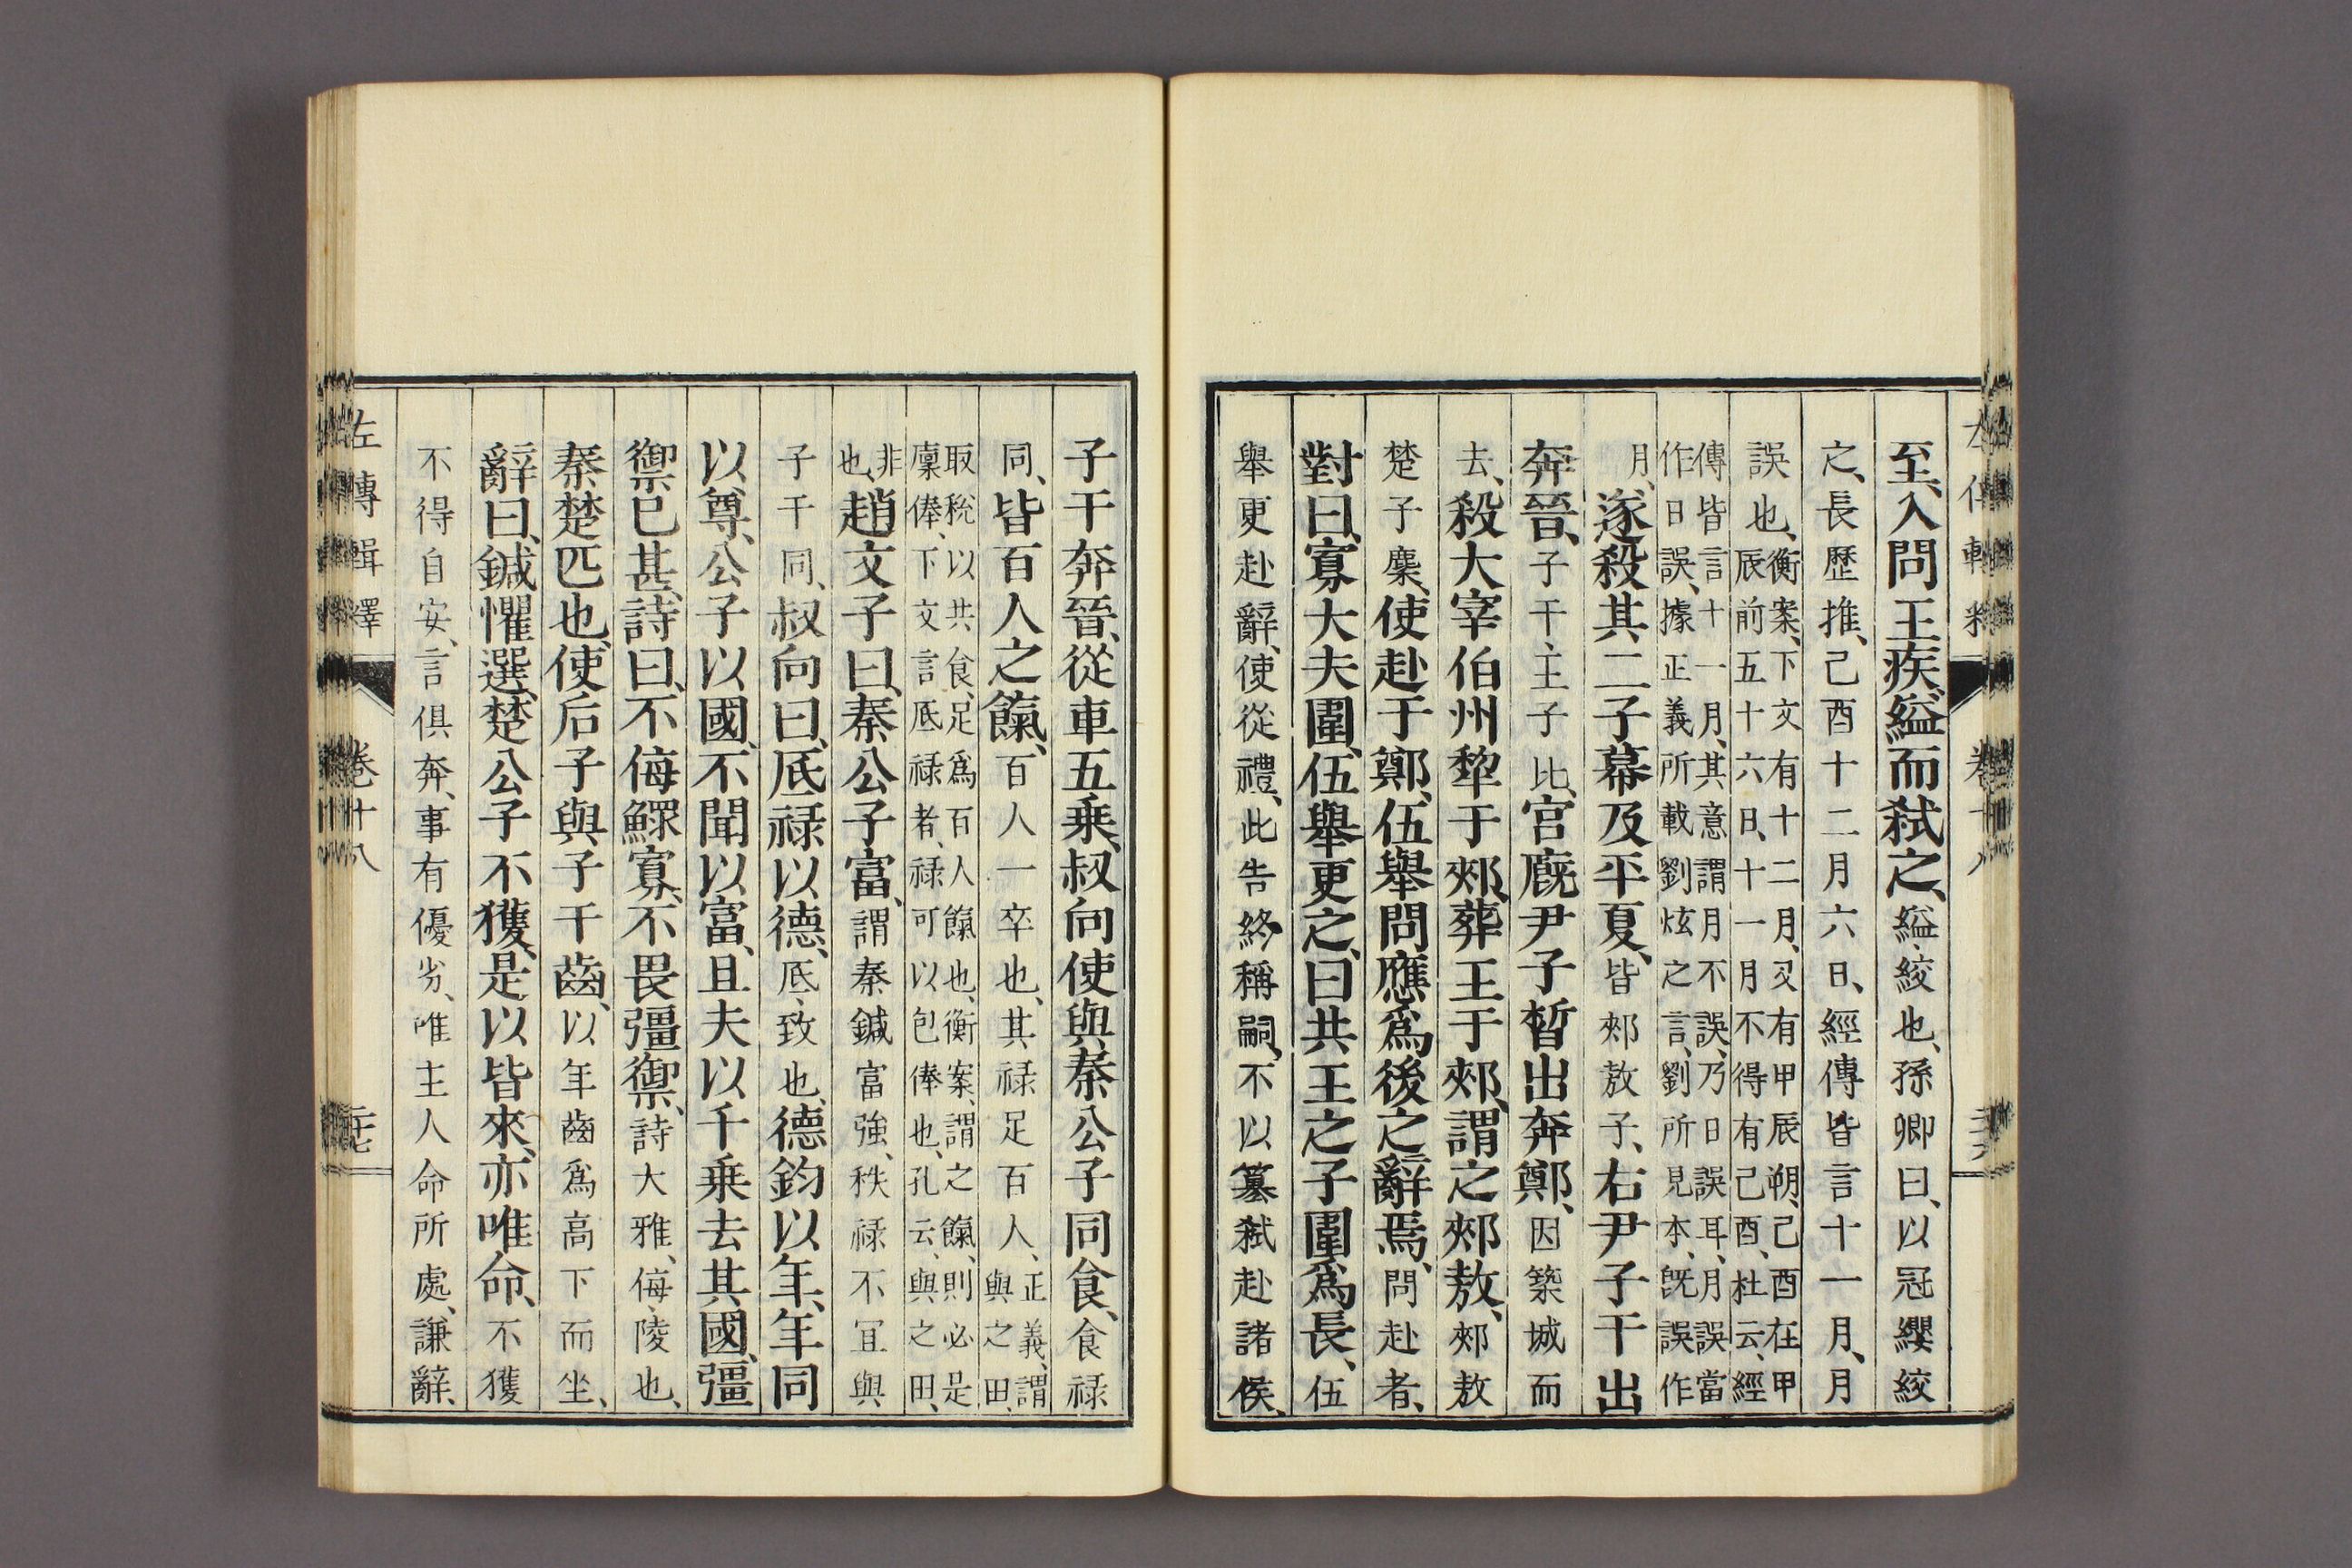 至、入問王疾、縊而弑之、縊、絞也、孫卿曰、以冠纓絞
之、長歷推、己酉十二月六日、經傳皆言十一月、月
誤也、衡案、下文有十二月、又有甲辰朔、己酉在甲
辰前五十六日、十一月不得有己酉、杜云、經
傳皆言十一月、其意謂月不誤、乃日誤耳、月誤當
作日誤、據正義所載劉炫之言、劉所見本、旣誤作
月、遂殺其二子幕及平夏、皆郟敖子、右尹子干出
奔晉、子干、主子比、宮廐尹子晳出奔鄭、因築城而
去、殺大宰伯州犂于郟、葬王于郟、謂之郟敖、郟敖
楚子麇、使赴于鄭、伍舉問應爲後之辭焉、問赴者、
對曰、寡大夫圍、伍舉更之、曰共王之子圍爲長、伍
舉更赴辭、使從禮、此告終稱嗣、不以篡弑赴諸侯、
子干奔晉、從車五乘、叔向使與秦公子同食、食祿
同、皆百人之餼、百人一卒也、其祿足百人、正義、謂與之田、
取稅以共食、足爲百人餼也、衡案、謂之餼、則必是
廩俸、下文言厎祿者、祿可以包俸也、孔云、與之田、
非也、趙文子曰、秦公子富、謂秦鍼富強、秩祿不宜與
子干同、叔向曰、厎祿以德、厎、致也、德鈞以年、年同
以尊、公子以國、不聞以富、且夫以千乘去其國、彊
禦已甚、詩曰、不侮鰥寡、不畏彊禦、詩大雅、侮、陵也、
秦楚匹也、使后子與子干齒、以年齒爲高下而坐、
辭曰、鍼懼選、楚公子不獲、是以皆來、亦唯命、不獲
不得自安、言俱奔、事有優劣、唯主人命所處、謙辭、
左傳輯釋
卷十八